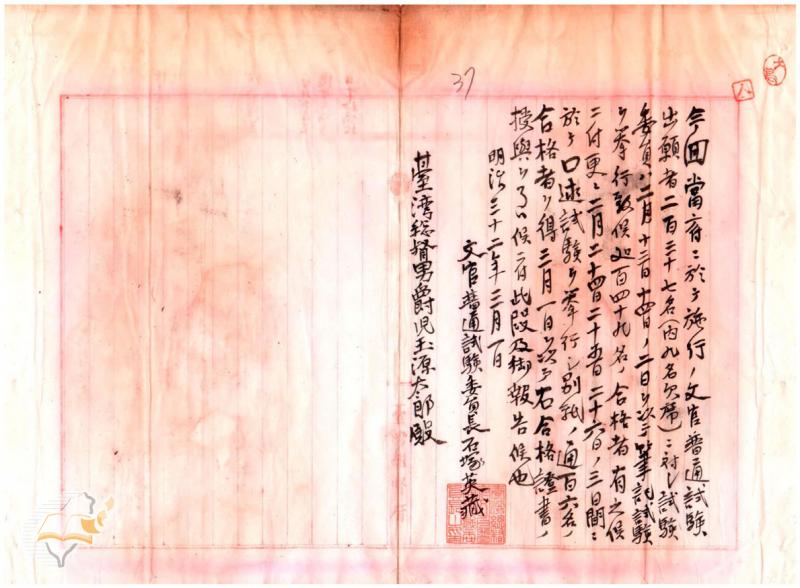 37
今回當府ニ於テ施行ノ文官普通試験
出願者二百三十七名(内九名欠席)ニ対シ試験
委員ハ二月十三日十四日ノ二日ヲ以テ筆記試験
ヲ挙行致候処百四十九名ノ合格者有之候
ニ付更ニ二月二十四日二十五日二十六日ノ三日間ニ
於テ口述試験ヲ挙行シ別紙ノ通百六名ノ
合格者ヲ得三月一日ヲ以テ右合格證書ノ
授與ヲ了ハ候ニ付此段及御報告候也
明治三十二年三月一日
文官普通試験委員長石塚英蔵
臺湾総督男爵児玉源太郎殿